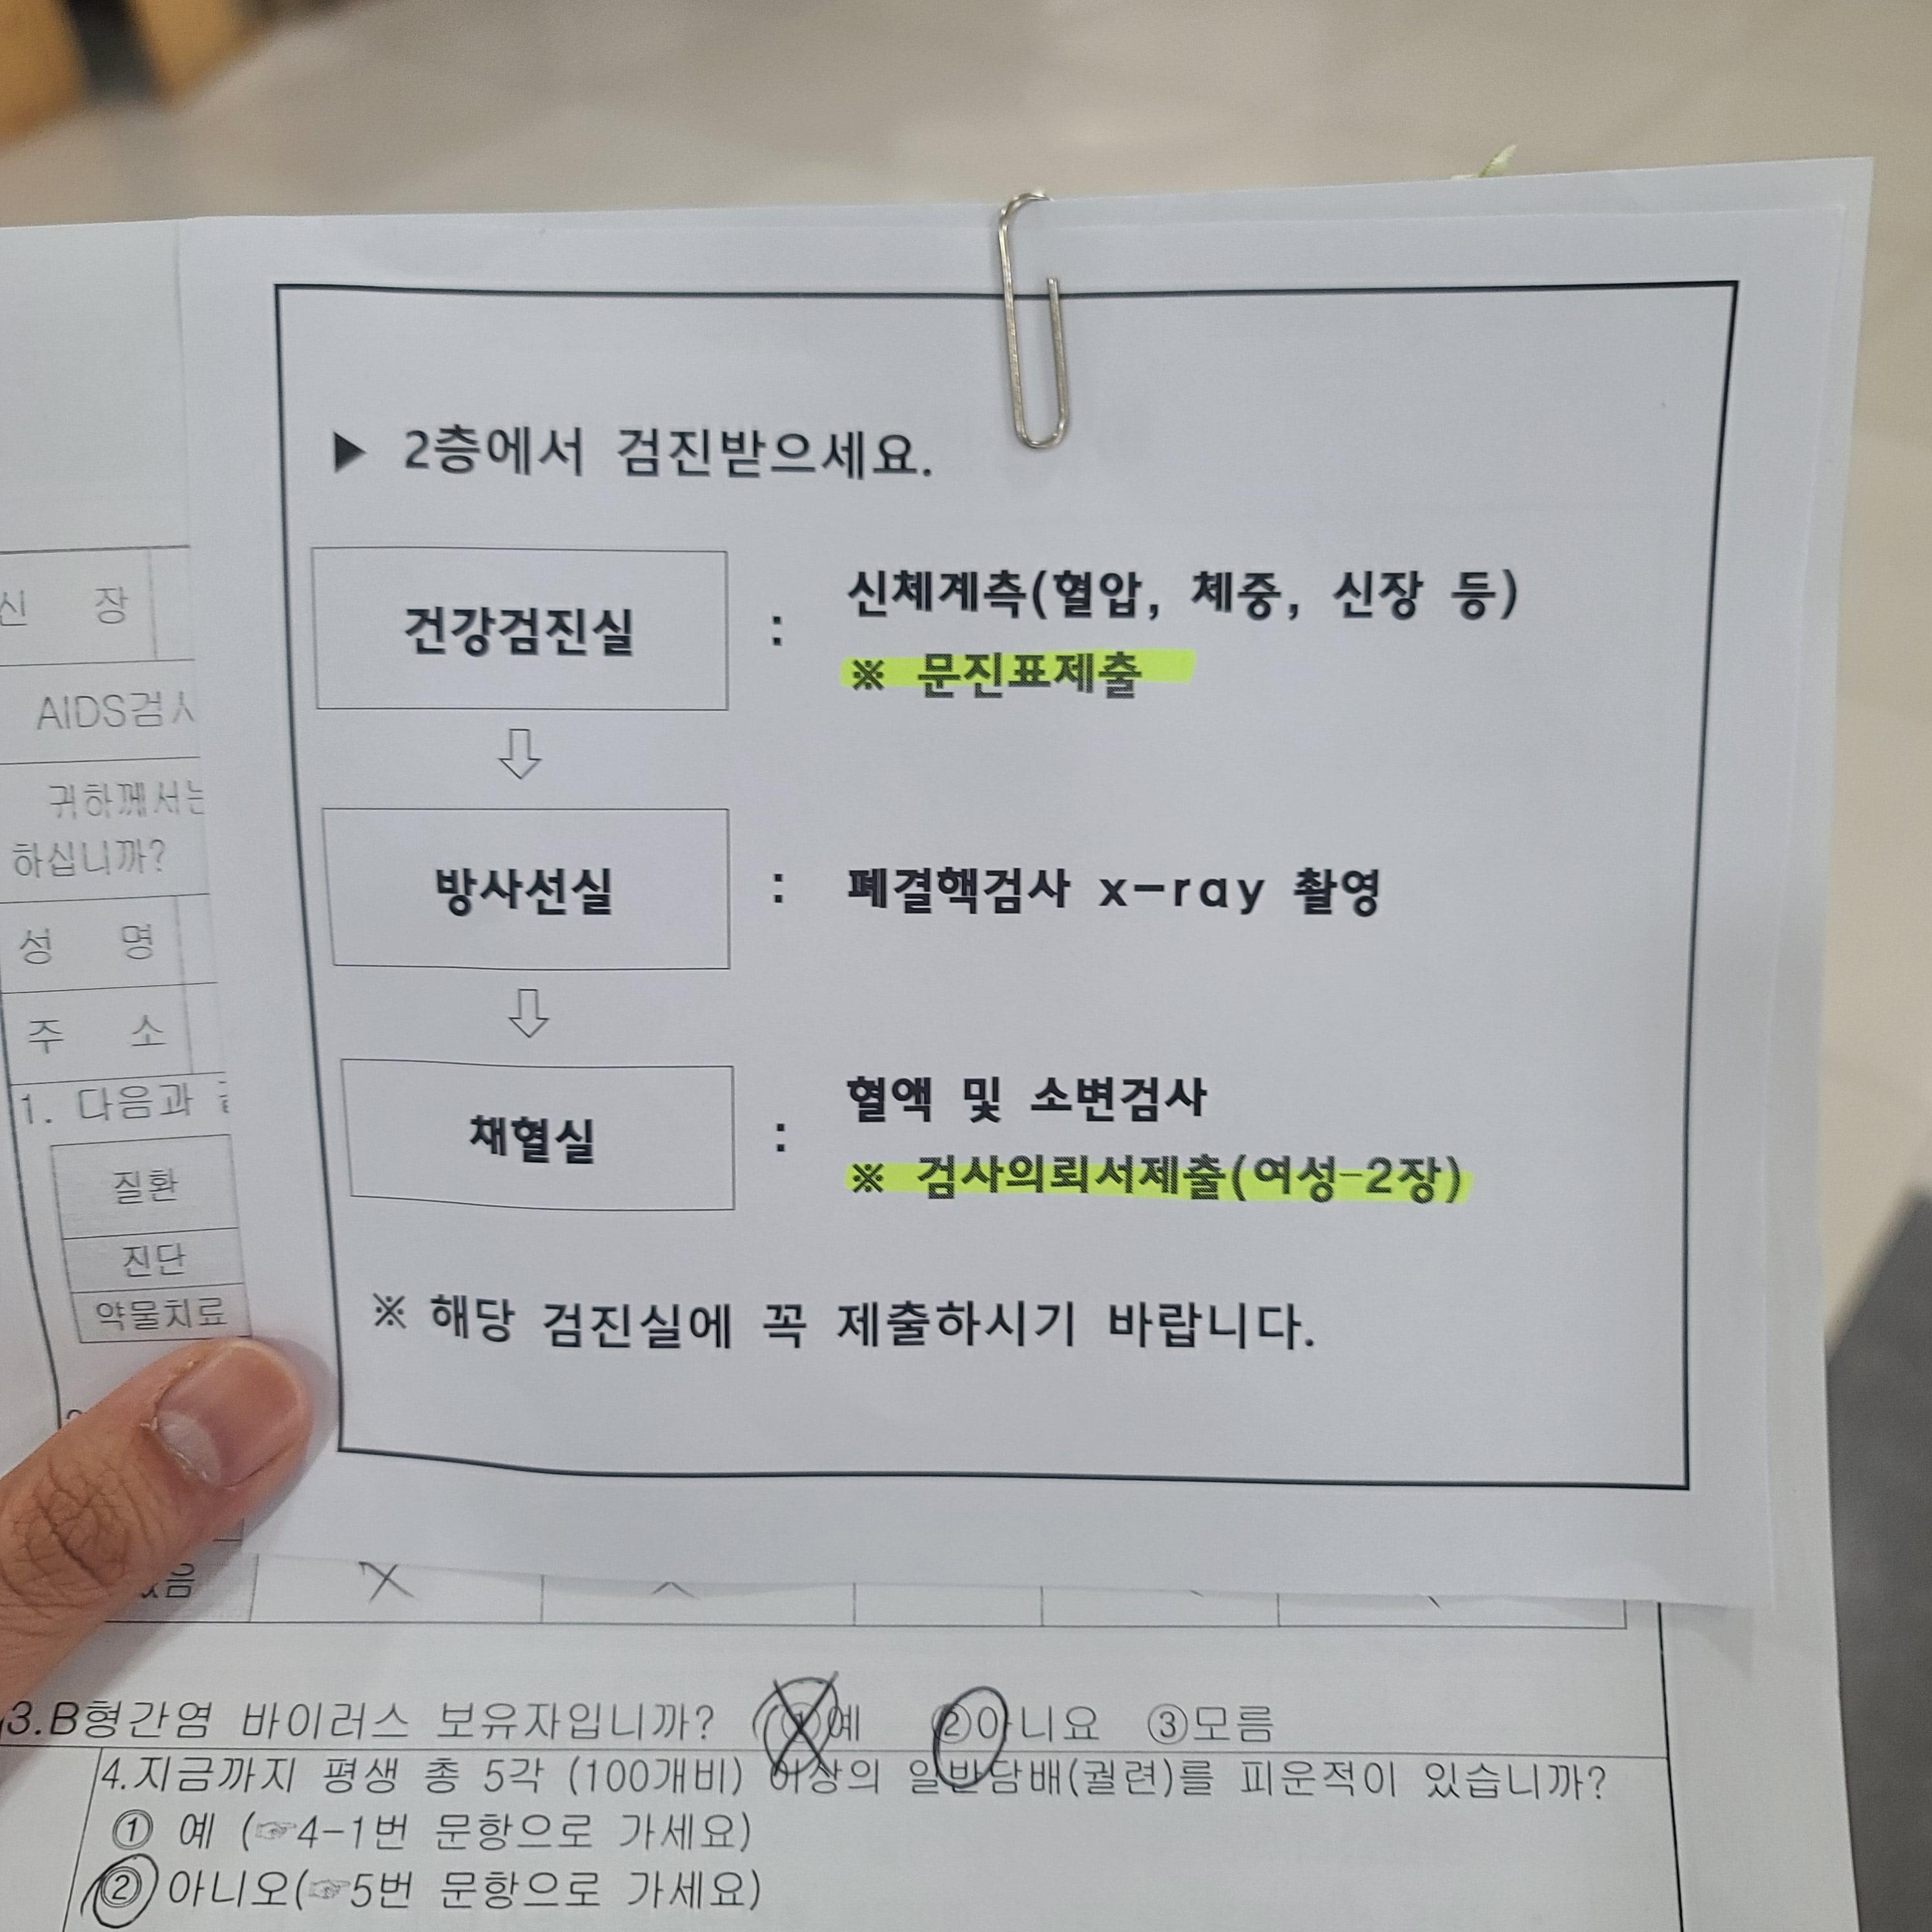 ▶ 2층에서 검진받으세요.
건강검진실 : 신체계측(혈압, 체중, 신장 등)
※ 문진표제출
방사선실 : 폐결핵검사 x-ray 촬영
채혈실 : 혈액 및 소변검사
※ 검사의뢰서제출(여성-2장)
※ 해당 검진실에 꼭 제출하시기 바랍니다.
신 장
AIDS검사
귀하께서는
하십니까?
성 명
주 소
1. 다음과
질환
진단
약물치료
3.B형간염 바이러스 보유자입니까? ①예 ②아니요 ③모름
4.지금까지 평생 총 5각 (100개비) 이상의 일반담배(궐련)를 피운적이 있습니까?
① 예 (☞4-1번 문항으로 가세요)
② 아니오(☞5번 문항으로 가세요)